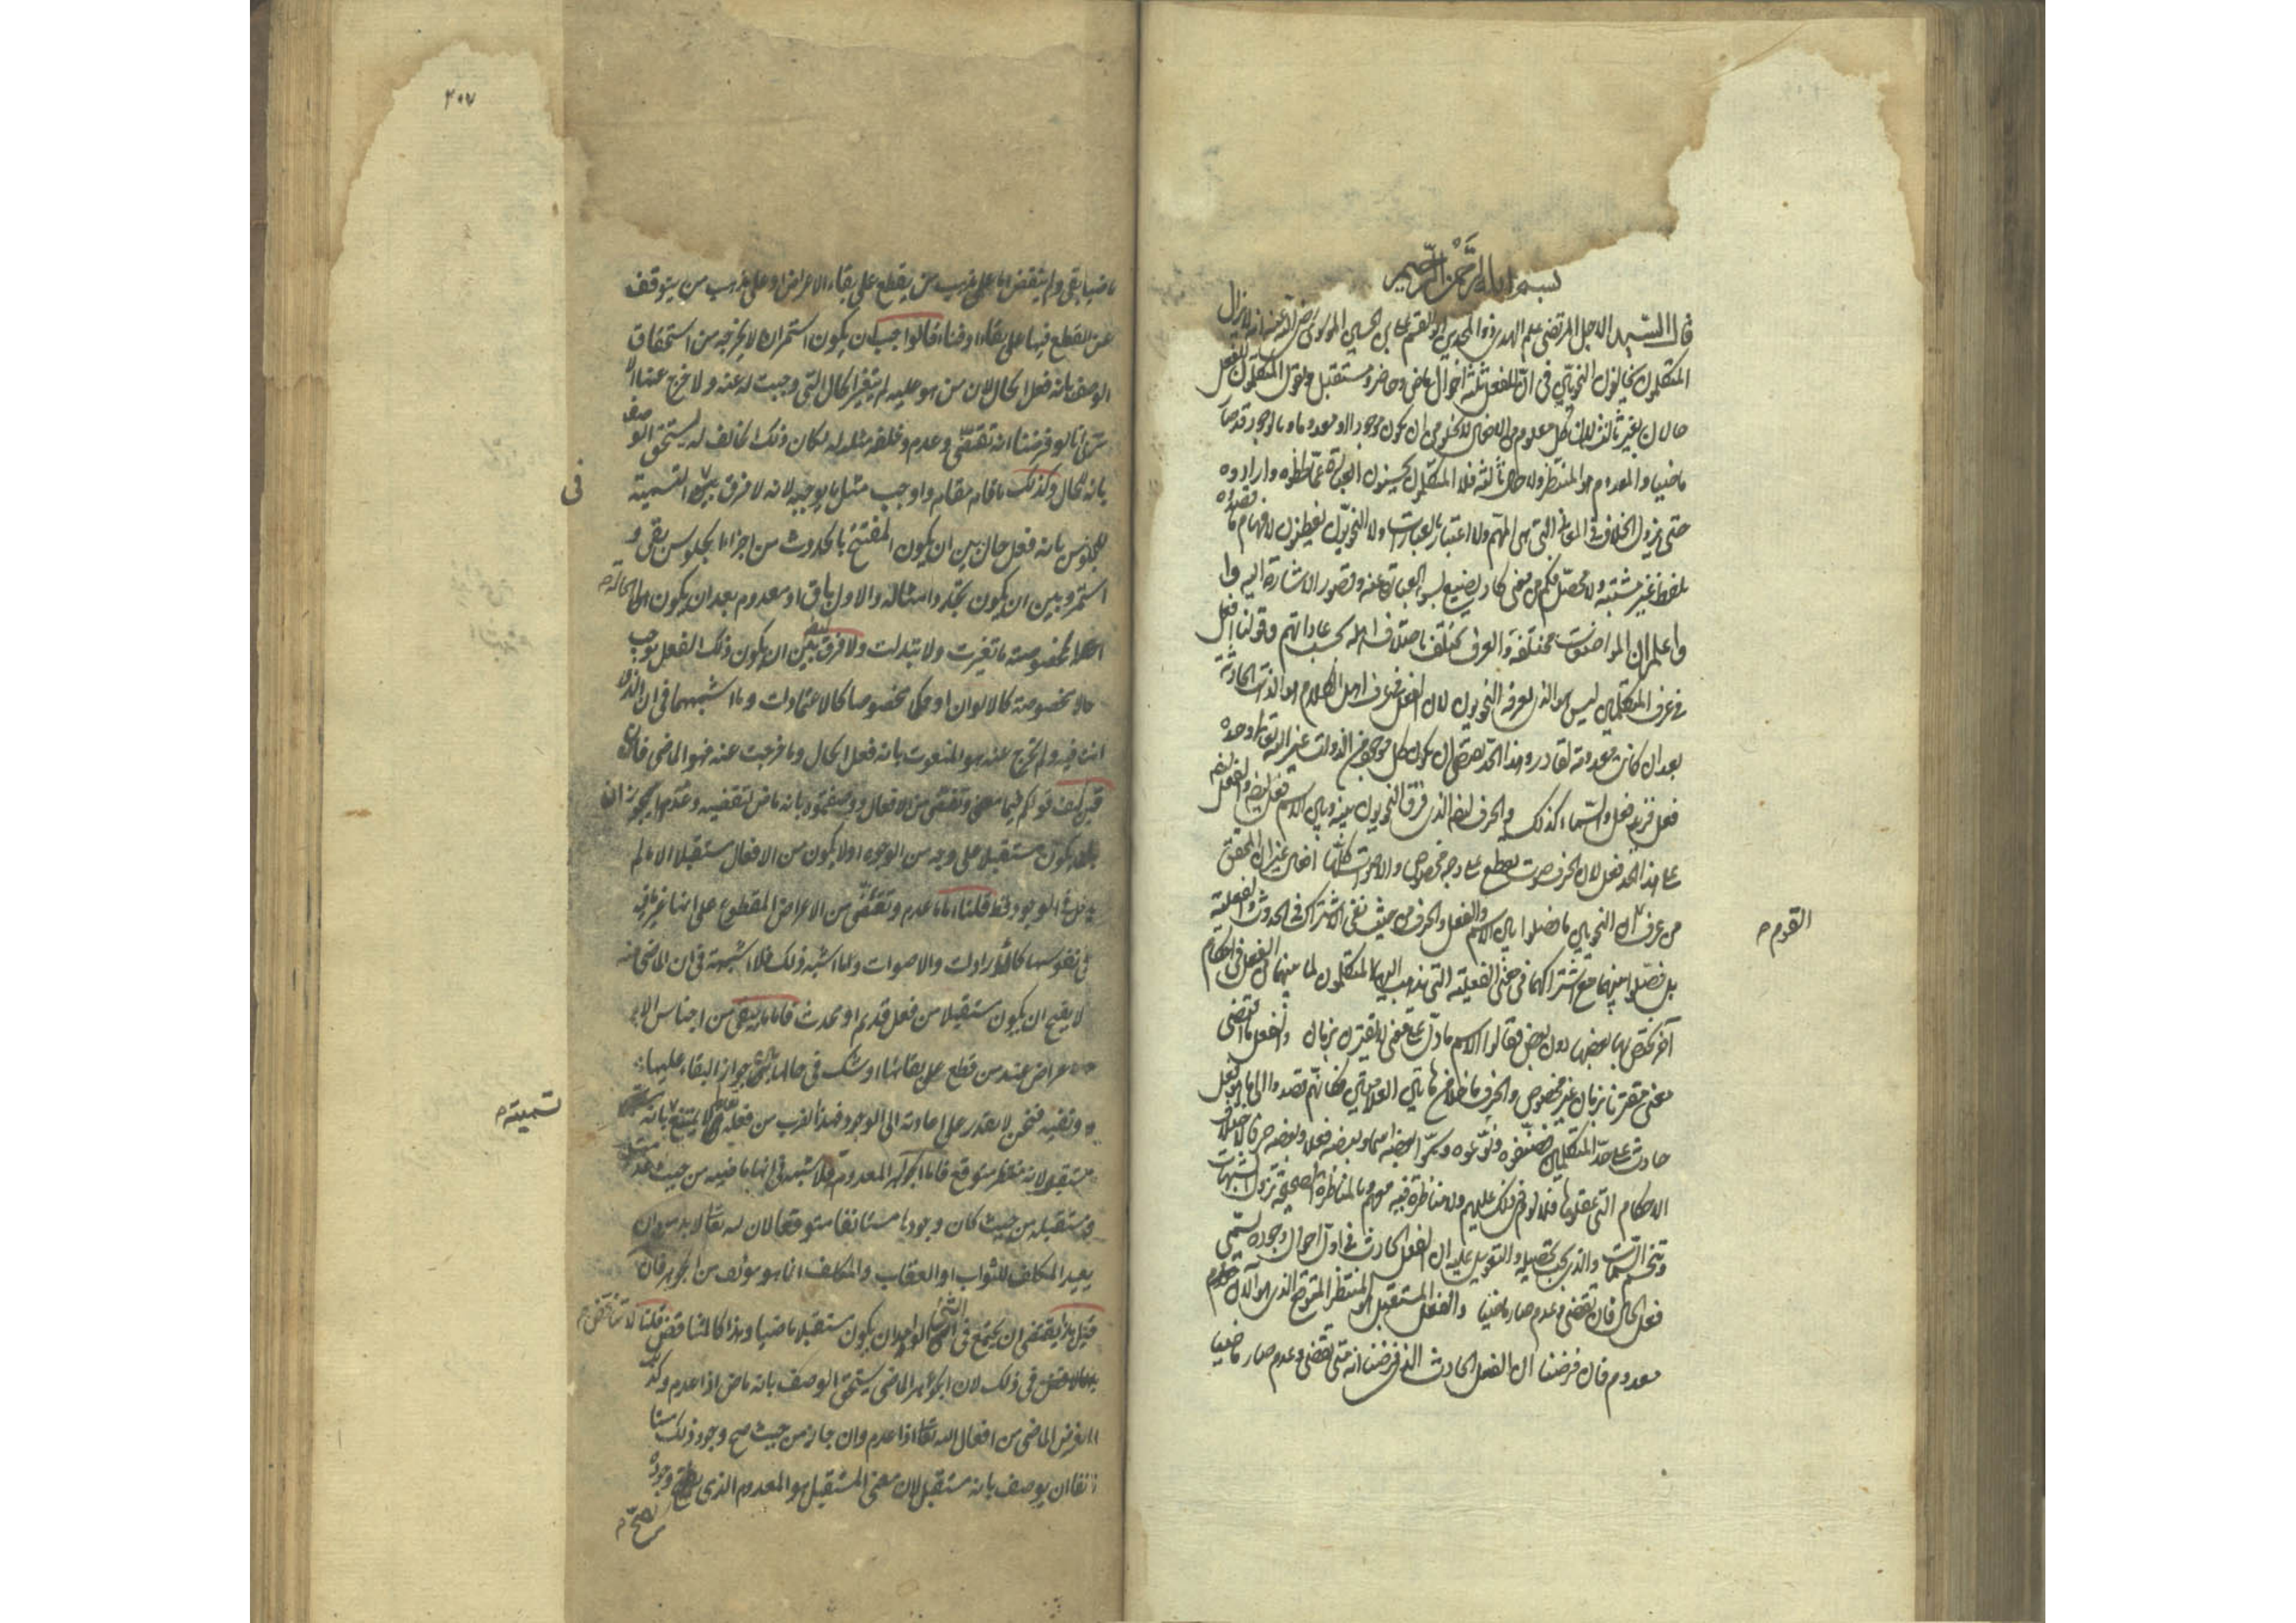 بسم الله الرحمن الرحيم
قال السيد الاجل المرتضى علم الهدى ذو المجدين ابو القسم على بن الحسين الموسوى رضى الله عنه لا يزال
المتكلمون يخالفون النحويين فى ان للفعل ثلثة احوال ماض وحاضر ومستقبل ويقول المتكلمون للفعل
حالان بغير ثالث لان كل معلوم من الافعال لا يخلو من ان يكون موجودا او معدوما وبالوجود قد صار
ماضيا والمعدوم هو المنتظر ولا حال ثالثة فلا المتكلمون يحسنون العبارة عما لحظوه وارادوه
حتى يزول الخلاف فى المعانى التى هى المهم ولا اعتبار بالعبارات ولا النحويون يفطنون لافهام ما قصدوه
بلفظ غير مشتبه ولا محتمل فكم من معنى كاد يضيع بسوء العبارة عنه وقصور الاشارة اليه
واعلم ان المواضعات مختلفة والعرف يختلف باختلاف اهله بحسب عاداتهم وقولنا فعل
فى عرف المتكلمين ليس هو الذى يعرفه النحويون لان الفعل فى عرف اهل الكلام هو الذات الحادثة
بعد ان كانت معدومة لقادر وهذا الحد يقتضى ان يكون كل موجود من الذوات غير الله تعالى وحده
فعل فزيد فعل والسماء كذلك والحرف ايضا الذى فرق النحويون بينه وبين الاسم فعل ايضا والفعل ايضا
على هذا الحد فعل لان الحرف صوت يقطع على وجه مخصوص والاصوات كلها افعال غير ان المحقق
من عرف ان النحويين ما فصلوا بين الاسم والفعل والحرف من حيث نفى الاشتراك فى الحدوث والفعلية
القوم
بل فصلوا بينهما مع اشتراكهما فى معنى الفعلية التى يذهب اليها المتكلمون لما بينهما من الفصل فى احكام
آخر يختص بها بعضها دون بعض فقالوا الاسم ما دل على معنى لا يقترن بزمان والفعل ما اقتضى
معنى مقترنا بزمان غير مخصوص والحرف ما خلا من هاتين العلامتين فكانهم قصدوا الى ما هو فعل
حادث على حد المتكلمين فصنفوه ونوعوه وسموا بعضه اسما وبعضه فعلا وبعضه حرفا لاختلاف
الاحكام التى عقلوها فلا لوم فى ذلك عليهم ولا مناظرة فيه معهم وبالمناظرة الصحيحة تزول الشبهات
وتنحسم الشبهات والذى يجب تحصيله والتعويل عليه ان الفعل الحادث فى اول احوال وجوده يسمى
فعل الحال فان تقضى وعدم صار ماضيا والفعل المستقبل هو المنتظر المتوقع الذى هو الآن
معدوم فان فرضنا ان الفعل الحادث الذى فرضنا انه متى تقضى وعدم صار ماضيا
٢٠٧
ماضيا بقى ولم ينقض اما على مذهب من يقطع على بقاء الاعراض او على مذهب من يتوقف
عن القطع فيها على بقاء او فناء قالوا جب ان يكون استمراره لا يخرجه من استحقاق
الوصف بانه فعل الحال لان من هو عليه لم يتغير الحال التى وجبت له عنه ولا خرج عنها الا
ترى انا لو فرضنا انه تقضى وعدم وخلفه مثله له لكان ذلك الخالف له يستحق الوصف
بانه للحال وكذلك ما قام مقامه واوجب مثل ما يوجبه لانه لا فرق بين التسمية
فى
للجلوس بانه فعل حال بين ان يكون المفتتح بالحدوث من اجزاء الجلوس بقى و
استمر وبين ان يكون تجدد امثاله والاول باق او معدوم بعد ان يكون الحالة
المخصوصة ما تغيرت ولا تبدلت ولا فرق ايضا بين ان يكون ذلك الفعل يوجب
حالا مخصوصة كالالوان او حكما مخصوصا كالاعتمادات وما اشبهها فى ان الذى
انت فيه ولم تخرج عنه هو المنعوت بانه فعل الحال وما خرجت عنه فهو الماضى فان
قيل كيف قولكم فيما مضى وتقضى من الافعال ووصفتموه بانه ماض لتقضيه وعدمه يجوز ان
يكون مستقبلا على وجه من الوجوه اولا يكون من الافعال مستقبلا الا ما لم
يدخل الوجود قط قلنا اما ما عدم وتقضى من الاعراض المقطوع على انها غير باقية
فى نفوسها كالارادات والاصوات وما اشبه ذلك فلا شبهة فى ان الماضى منه
لا يصح ان يكون مستقبلا من فعل قديم او محدث فاما ما يبقى من اجناس الا
عراض عند من قطع على بقائها او شك فى حالها جواز البقاء عليها
ونقيه فنحن لا نقدر على اعادته الى الوجود فهذا الضرب من فعله تعالى لا يمتنع بانه
تسميته
مستقبل لانه منتظر متوقع فاما الجواهر المعدومة فلا شبهة فى انها ماضية من حيث عدمت
ومستقبلة من حيث كان وجودها مستانفا متوقعا لان الله تعالى لا بد من ان
يعيد المكلف للثواب او العقاب والمكلف انما هو مؤلف من الجواهر فان
قيل هذا يقتضى ان يجتمع فى الشئ الواحد ان يكون مستقبلا ماضيا وهذا كالمتناقض قلنا لا تناقض
فى ذلك لان الجوهر الماضى يستحق الوصف بانه ماض اذا عدم وكذلك
العرض الماضى من افعال الله تعالى اذا عدم وان جاز من حيث صح وجود ذلك مستا
نفا ان يوصف بانه مستقبل لان معنى المستقبل هو المعدوم الذى يصح وجوده
يصح